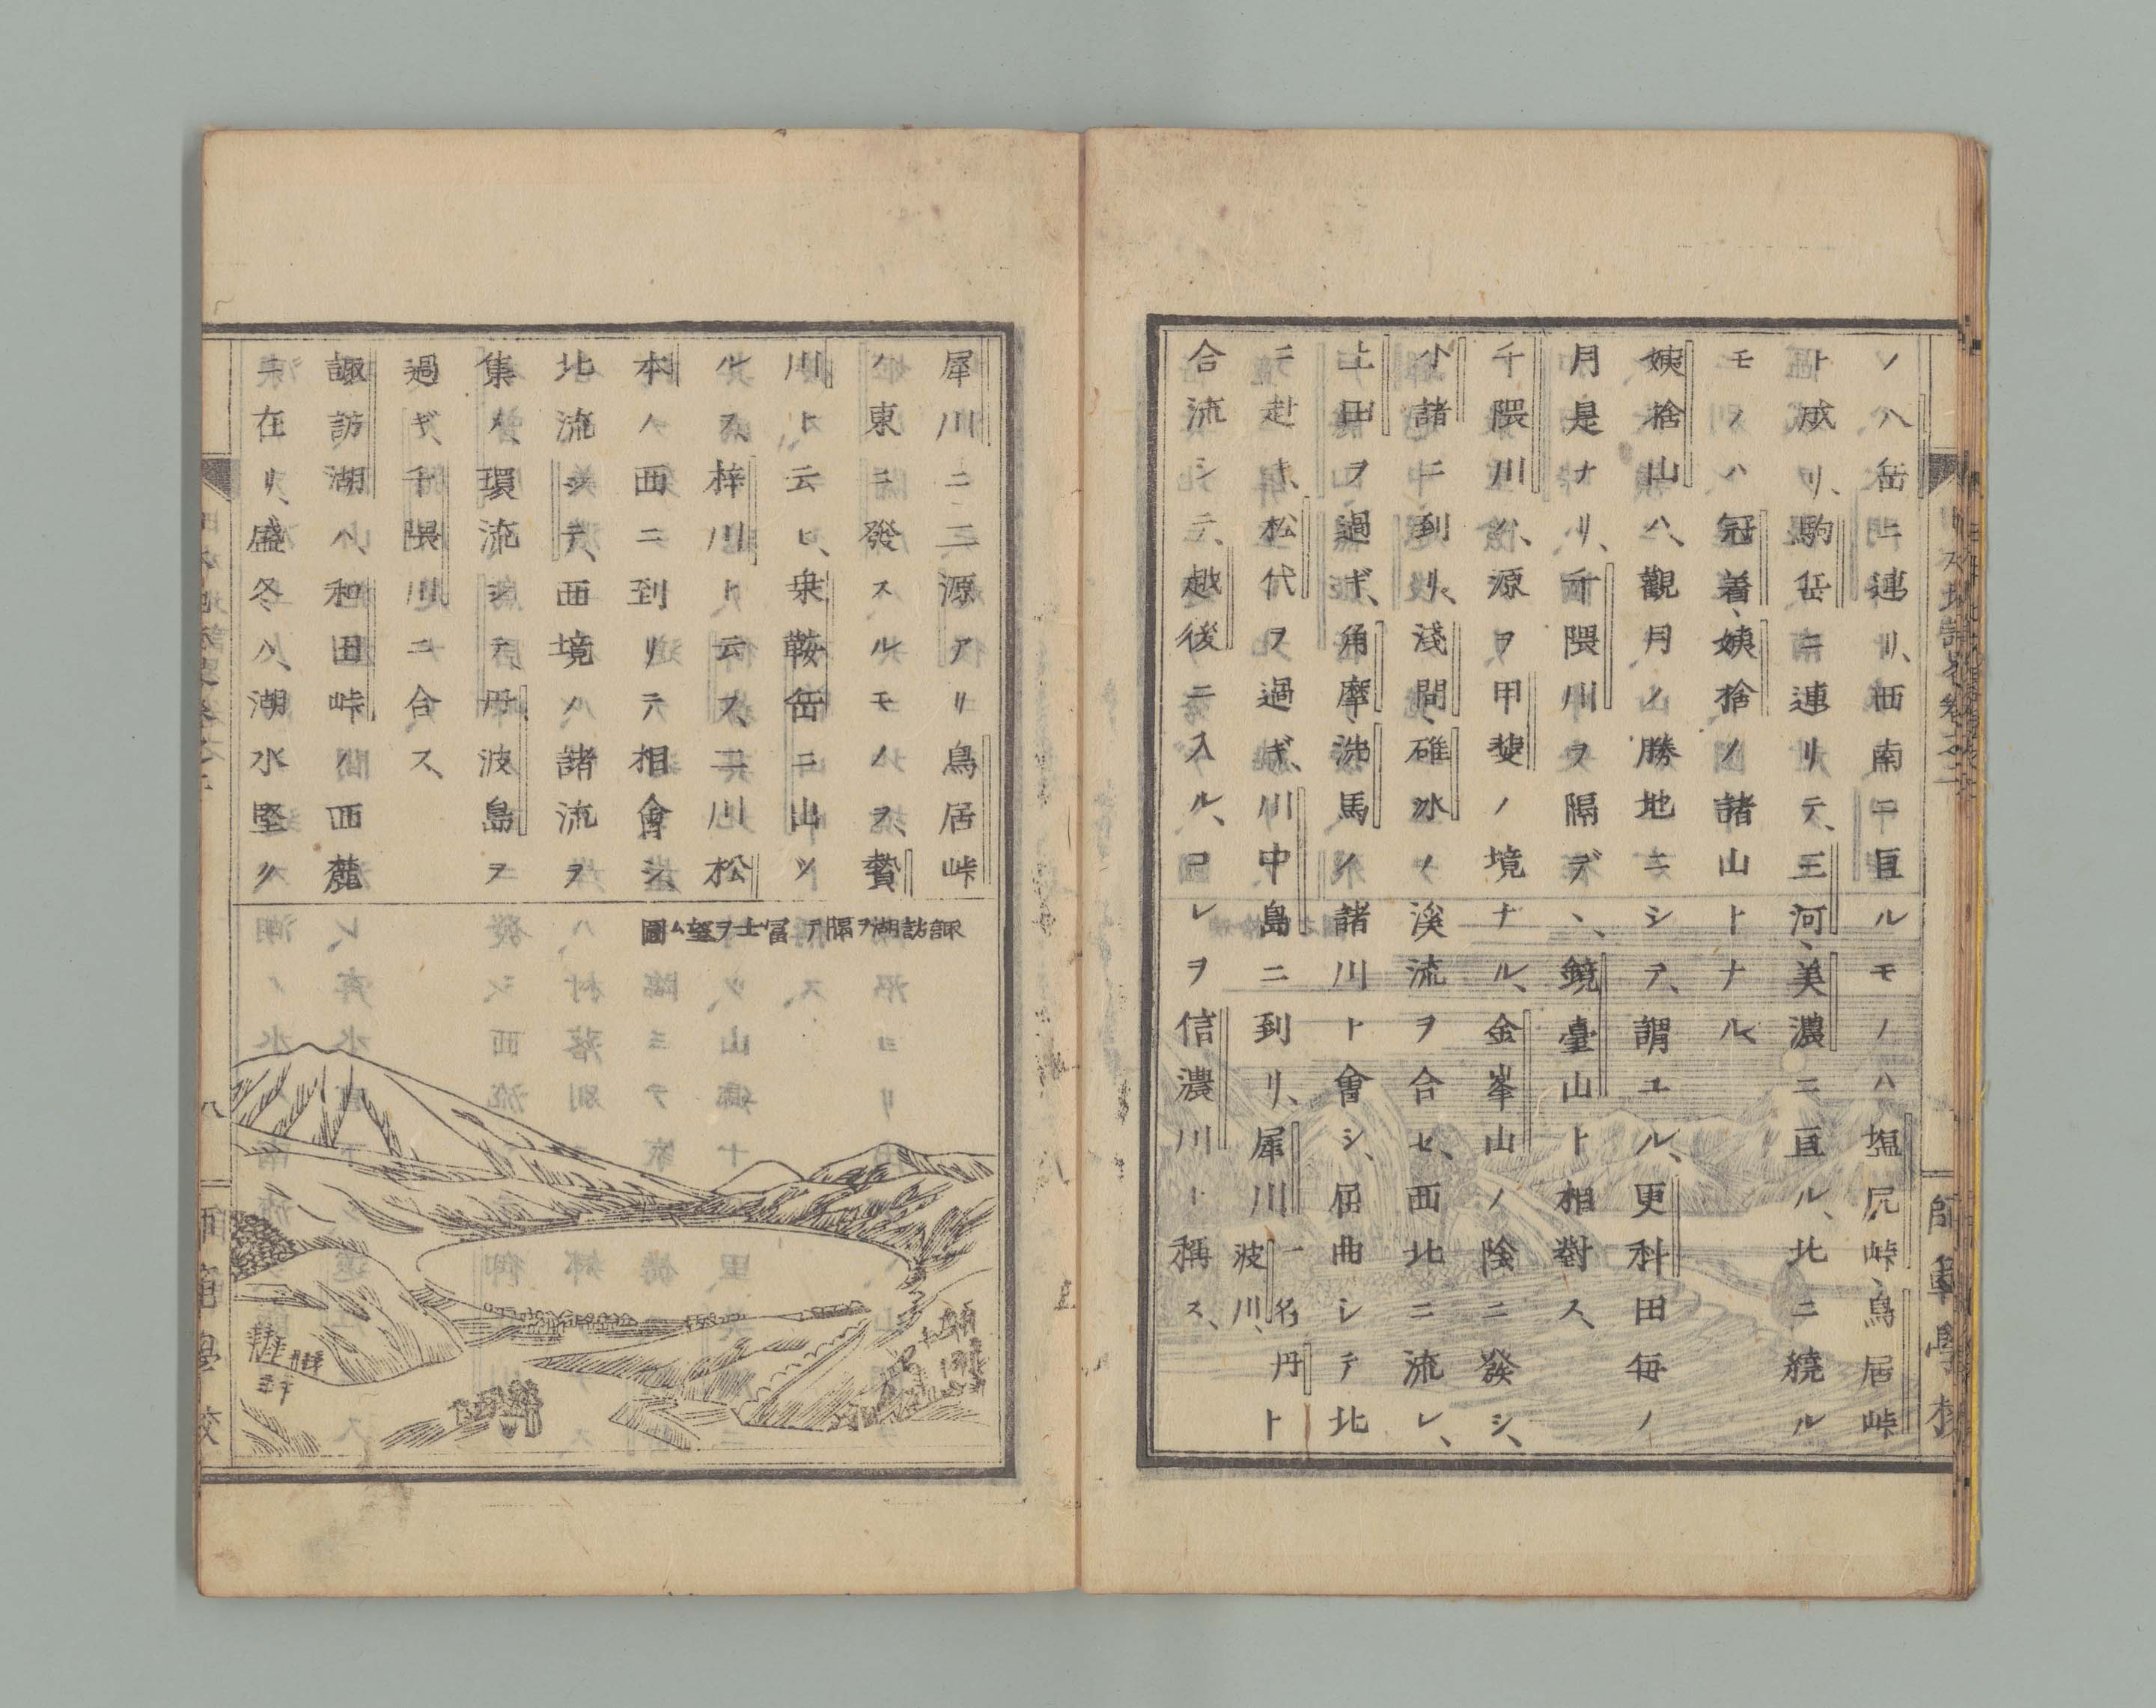 ノ八岳ニ連リ、西南ニ亘ルモノハ塩尻峠、鳥居峠
ト成リ、駒岳ニ連リテ、三河、美濃ニ亘ル、北ニ繞ル
モノハ、冠着、姨捨ノ諸山トナル、
姨捨山ハ、觀月ノ勝地ニシテ、謂ユル、更科田毎ノ
月是ナリ、千隈川ヲ隔デヽ、鏡臺山ト相對ス、
千隈川ハ、源ヲ甲斐ノ境ナル、金峯山ノ陰ニ發シ、
小諸ニ到リ、淺間、碓氷ノ溪流ヲ合セ、西北ニ流レ、
上田ヲ過ギ、角摩、洗馬ノ諸川ト會シ、屈曲シテ北
ニ赴キ、松代ヲ過ギ、川中島ニ到リ、犀川一名丹波川、ト
合流シテ、越後ニ入ル、コレヲ信濃川ト稱ス、
犀川ニ二源アリ鳥居峠
ノ東ニ發スルモノヲ、贄
川ト云ヒ、乗鞍岳ニ出ツ
ルヲ、梓川ト云フ、二川松
本ノ西ニ到リテ相會シ、
北流シテ、西境ノ諸流ヲ
集メ、環流シテ、丹波島ヲ
過ギ、千隈川ニ合ス、
諏訪湖ハ、和田峠ノ西麓
ニ在リ、盛冬ハ、湖水堅ク
諏訪湖ヲ隔テ冨士ヲ望ム圖
八
師範學校